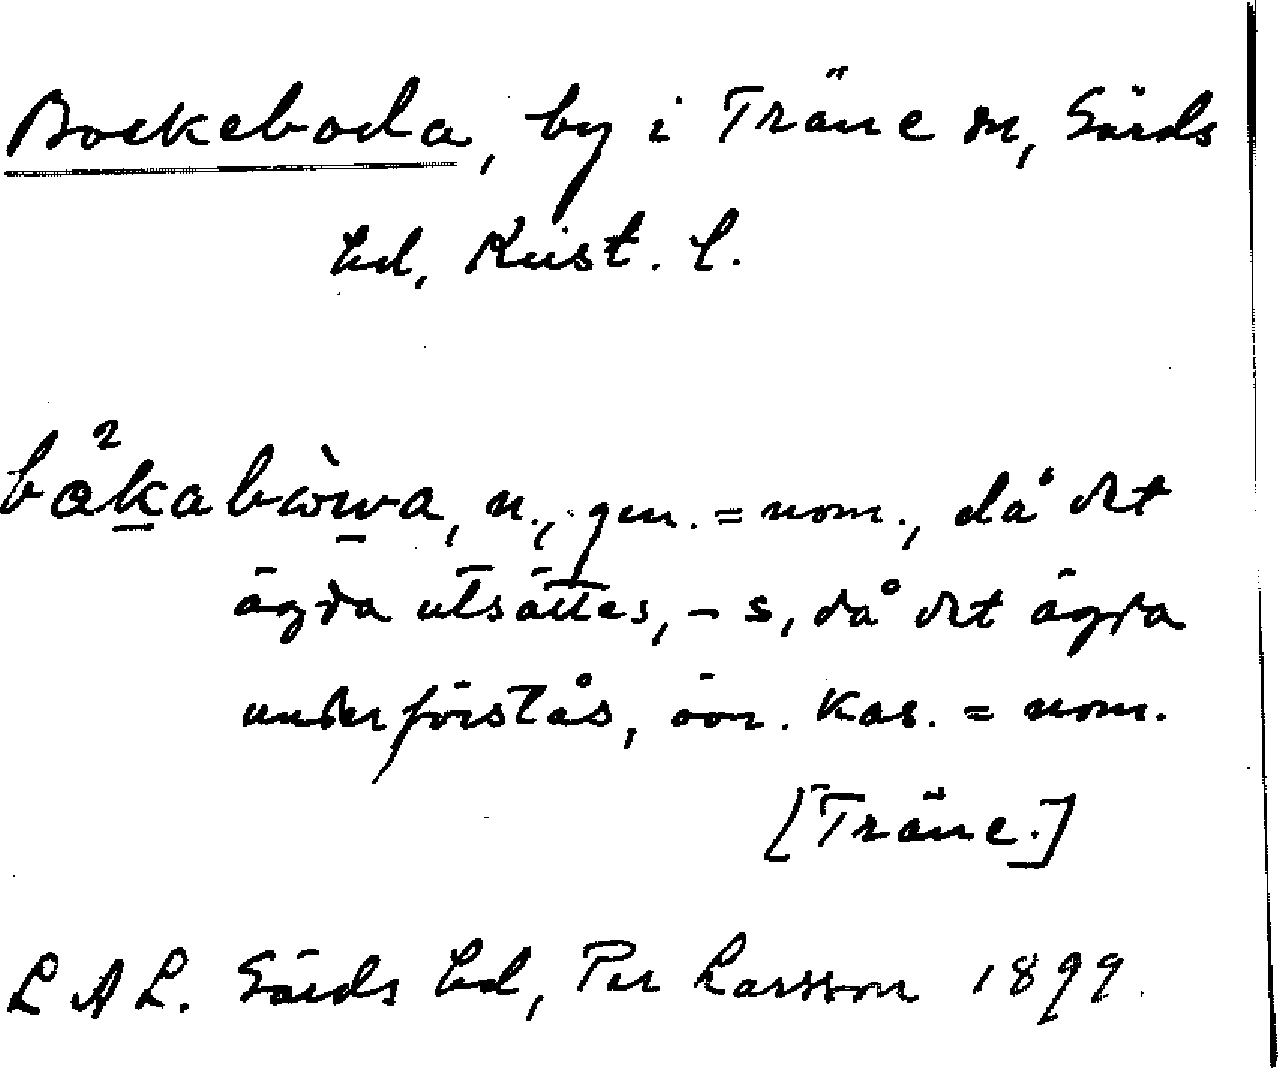 Bockeboda, by i Träne sn, Gärds
hd, Krist. l.
bå²kabòwa, n., gen. = nom., då det
ägda utsättes, -s, då det ägda
underförstås, övr. kas. = nom.
[Träne.]
LAL. Gärds hd, Per Larsson 1899.